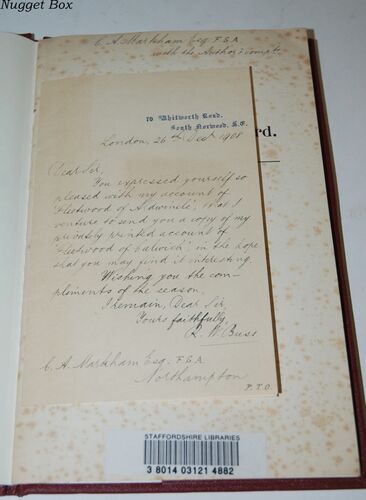 Nugget Box
C. A. Markham Esq. F.S.A.
with the Author's compts
rd.
70 Whitworth Road,
South Norwood, S.E.
London, 26th Decr 1908
Dear Sir,
You expressed yourself so
pleased with my account of
'Fleetwood of Aldwincle', that I
venture to send you a copy of my
privately printed account of
'Fleetwood of Calwich' in the hope
that you may find it interesting.
Wishing you the com-
pliments of the season,
I remain, Dear Sir,
Yours faithfully,
R. W. Buss
C. A. Markham Esq. F.S.A.
Northampton
P.T.O.
STAFFORDSHIRE LIBRARIES
3 8014 03121 4882